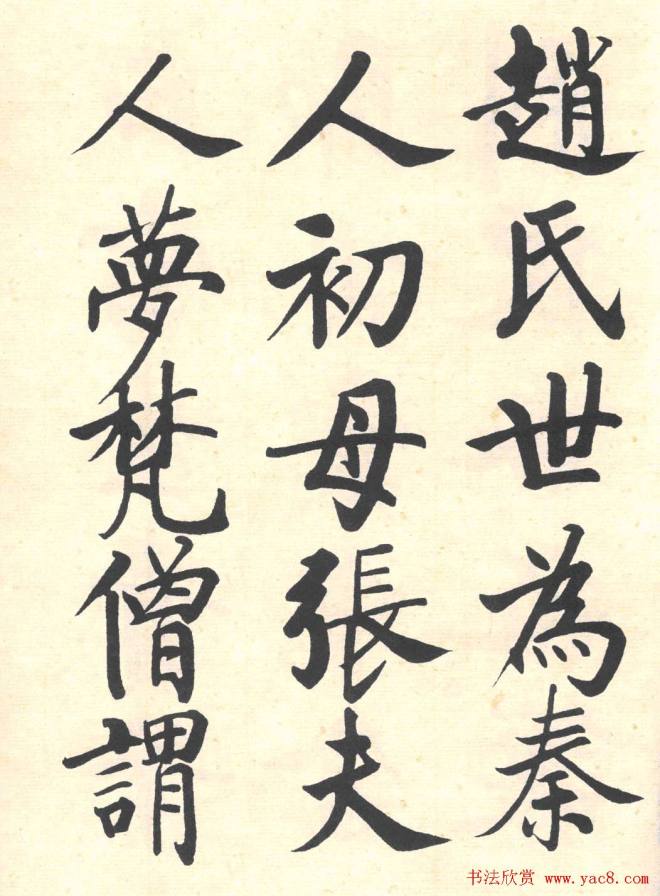 趙氏世為秦
人初母張夫
人夢梵僧謂
书法欣赏 www.yac8.com